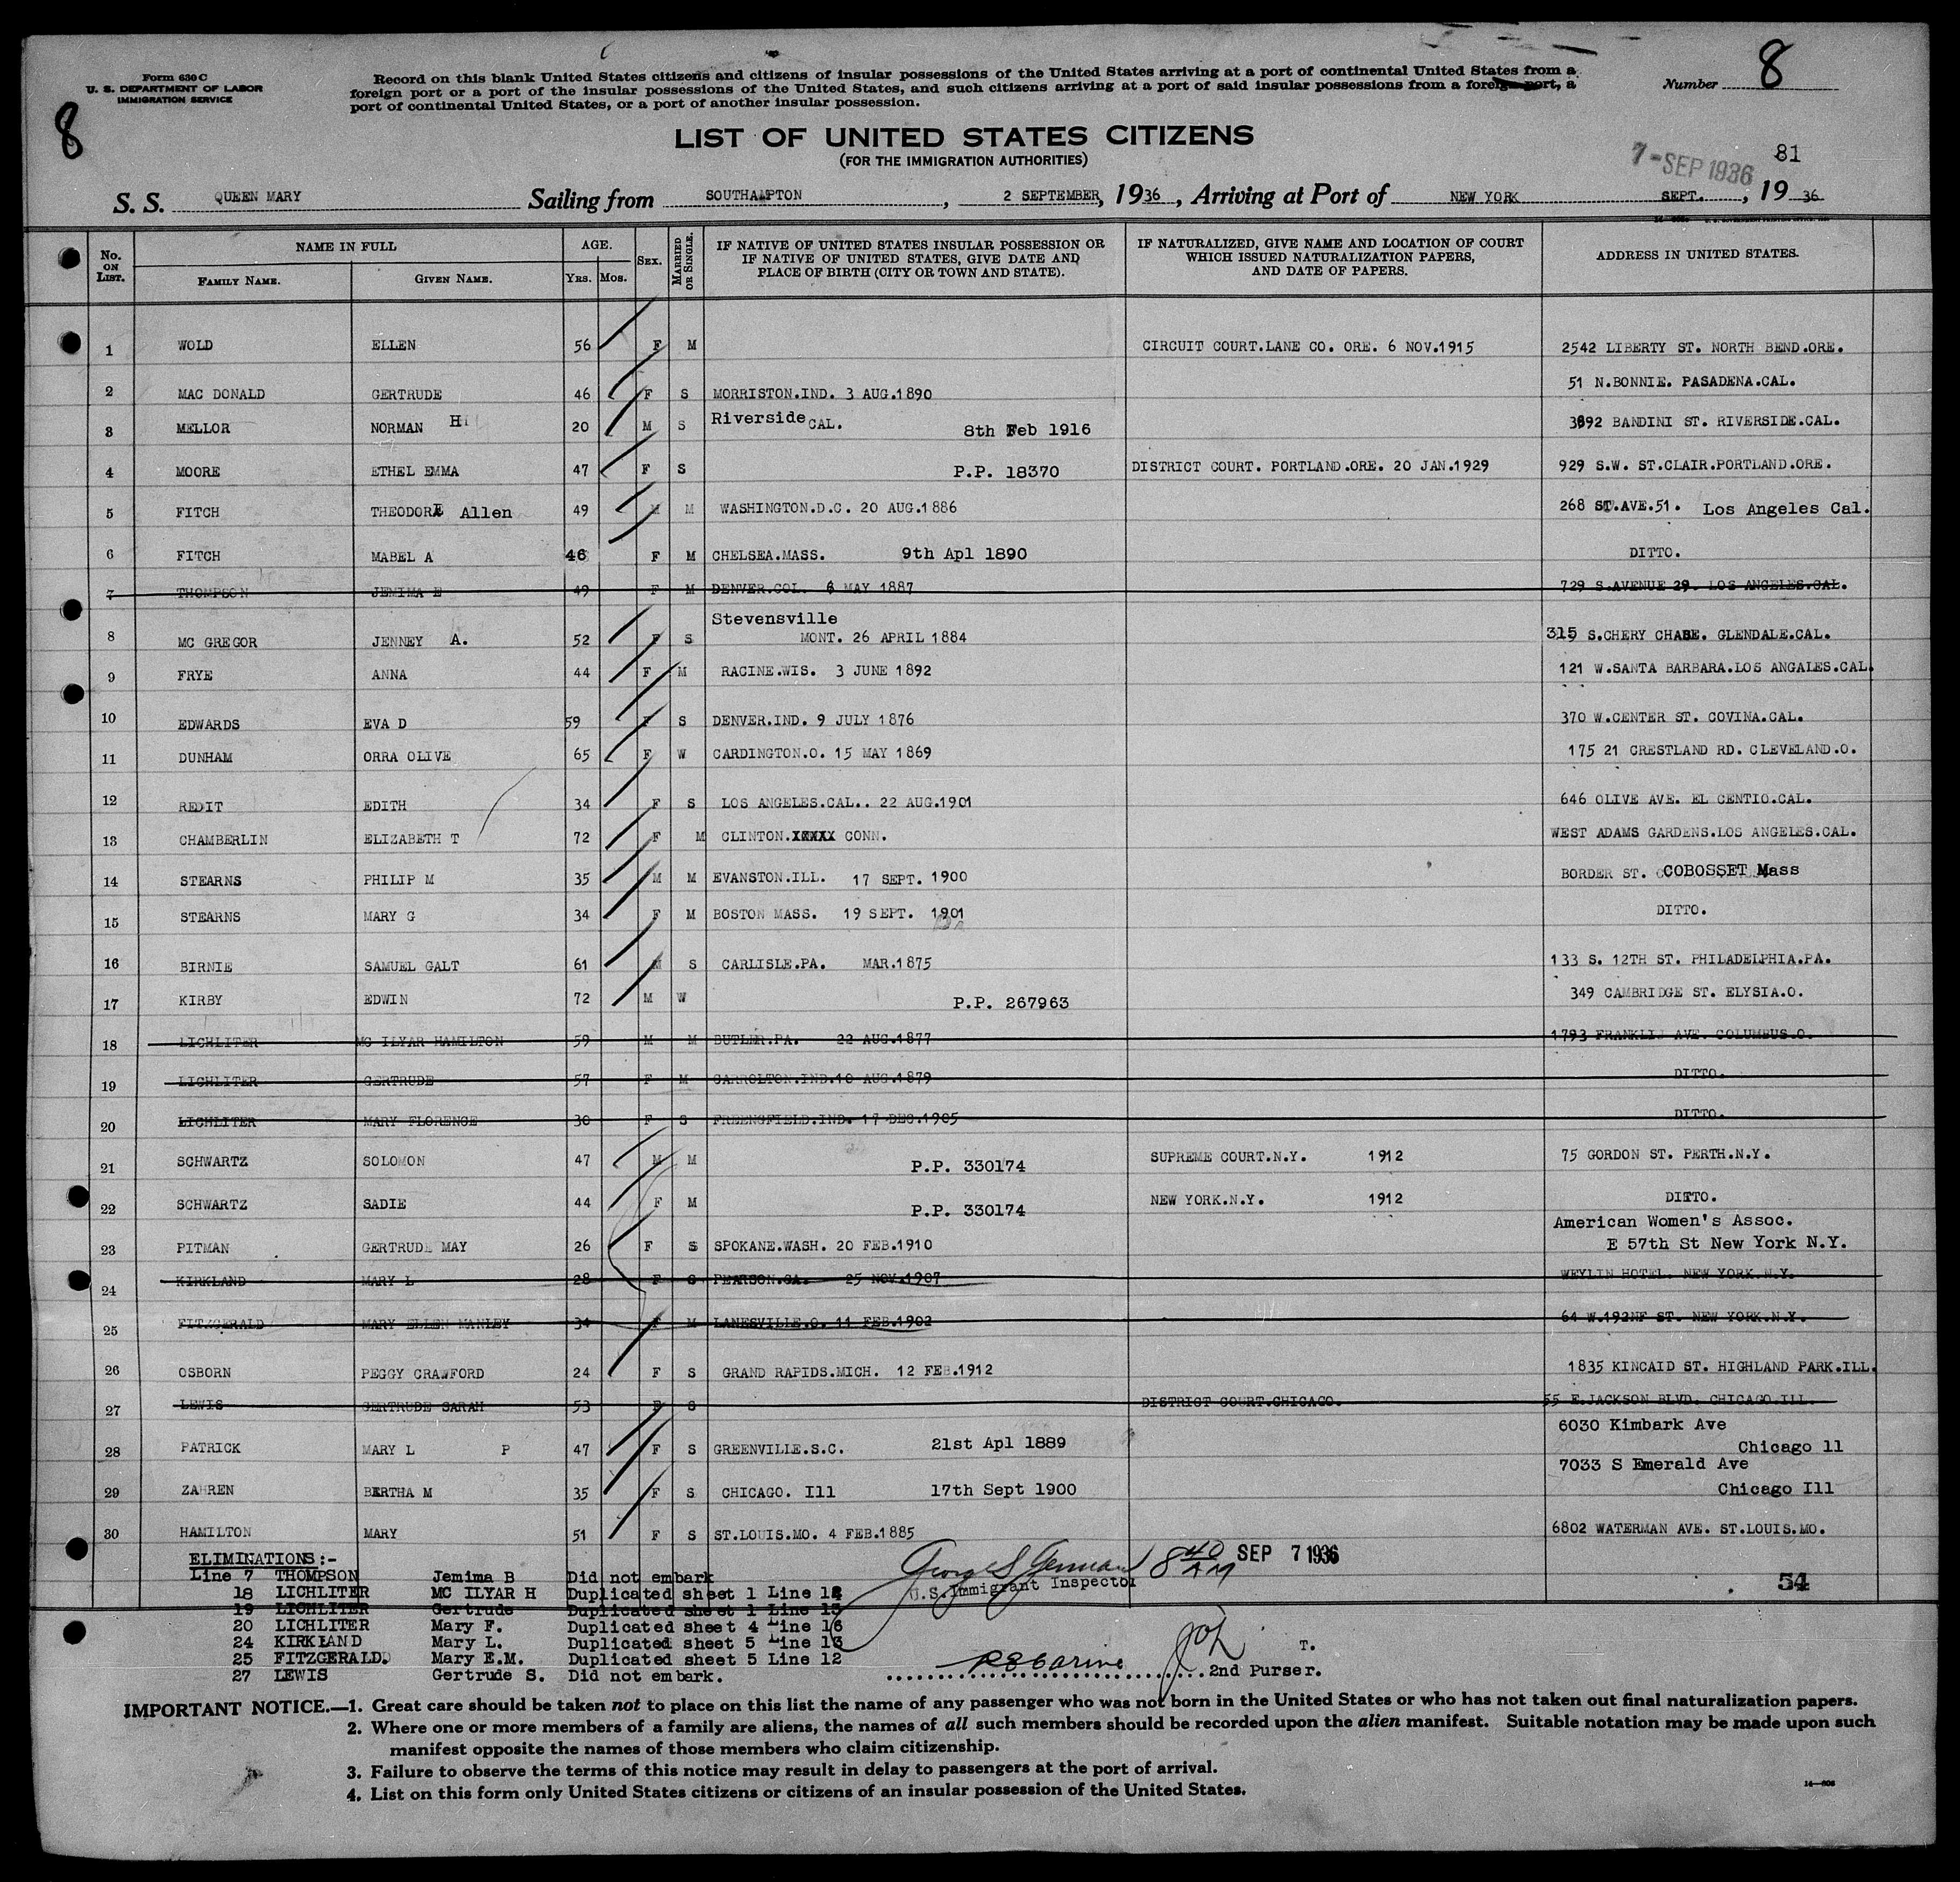 Form 630 C
U. S. DEPARTMENT OF LABOR
IMMIGRATION SERVICE
Record on this blank United States citizens and citizens of insular possessions of the United States arriving at a port of continental United States from a
foreign port or a port of the insular possessions of the United States, and such citizens arriving at a port of said insular possessions from a foreign port, a
port of continental United States, or a port of another insular possession.
Number 8
8
LIST OF UNITED STATES CITIZENS
(FOR THE IMMIGRATION AUTHORITIES)
7-SEP 1936 81
S. S. QUEEN MARY Sailing from SOUTHAMPTON, 2 SEPTEMBER, 1936, Arriving at Port of NEW YORK SEPT., 19 36
No. ON LIST. NAME IN FULL FAMILY NAME. GIVEN NAME. AGE. YRS. MOS. SEX. MARRIED OR SINGLE. IF NATIVE OF UNITED STATES INSULAR POSSESSION OR IF NATIVE OF UNITED STATES, GIVE DATE AND PLACE OF BIRTH (CITY OR TOWN AND STATE). IF NATURALIZED, GIVE NAME AND LOCATION OF COURT WHICH ISSUED NATURALIZATION PAPERS, AND DATE OF PAPERS. ADDRESS IN UNITED STATES.
1 WOLD ELLEN 56 F M CIRCUIT COURT.LANE CO. ORE. 6 NOV.1915 2542 LIBERTY ST. NORTH BEND.ORE.
2 MAC DONALD GERTRUDE 46 F S MORRISTON.IND. 3 AUG.1890 51 N.BONNIE. PASADENA.CAL.
3 MELLOR NORMAN H 20 M S Riverside CAL. 8th Feb 1916 3892 BANDINI ST. RIVERSIDE.CAL.
4 MOORE ETHEL EMMA 47 F S P.P. 18370 DISTRICT COURT. PORTLAND.ORE. 20 JAN.1929 929 S.W. ST.CLAIR.PORTLAND.ORE.
5 FITCH THEODORE Allen 49 M M WASHINGTON.D.C. 20 AUG.1886 268 ST.AVE.51. Los Angeles Cal.
6 FITCH MABEL A 46 F M CHELSEA.MASS. 9th Apl 1890 DITTO.
7 THOMPSON JEMIMA E 49 F M DENVER.COL. 6 MAY 1887 729 S.AVENUE 29. LOS ANGELES.CAL.
8 MC GREGOR JENNEY A. 52 F S Stevensville MONT. 26 APRIL 1884 315 S.CHERY CHASE. GLENDALE.CAL.
9 FRYE ANNA 44 F M RACINE.WIS. 3 JUNE 1892 121 W.SANTA BARBARA.LOS ANGALES.CAL.
10 EDWARDS EVA D 59 F S DENVER.IND. 9 JULY 1876 370 W.CENTER ST. COVINA.CAL.
11 DUNHAM ORRA OLIVE 65 F W CARDINGTON.O. 15 MAY 1869 175 21 CRESTLAND RD. CLEVELAND.O.
12 REDIT EDITH 34 F S LOS ANGELES.CAL.. 22 AUG.1901 646 OLIVE AVE. EL CENTIO.CAL.
13 CHAMBERLIN ELIZABETH T 72 F M CLINTON.XXXXX CONN. WEST ADAMS GARDENS.LOS ANGELES.CAL.
14 STEARNS PHILIP M 35 M M EVANSTON.ILL. 17 SEPT. 1900 BORDER ST. COBOSSET Mass
15 STEARNS MARY G 34 F M BOSTON MASS. 19 SEPT. 1901 DITTO.
16 BIRNIE SAMUEL GALT 61 M S CARLISLE.PA. MAR.1875 133 S. 12TH ST. PHILADELPHIA.PA.
17 KIRBY EDWIN 72 M W P.P. 267963 349 CAMBRIDGE ST. ELYSIA.O.
18 LICHLITER MC ILYAR HAMILTON 59 M M BUTLER.PA. 22 AUG.1877 1793 FRANKLIN AVE. COLUMBUS.O.
19 LICHLITER GERTRUDE 57 F M CARROLTON.IND.10 AUG.1879 DITTO.
20 LICHLITER MARY FLORENCE 30 F S FREENGFIELD.IND. 17 DEC.1905 DITTO.
21 SCHWARTZ SOLOMON 47 M M P.P. 330174 SUPREME COURT.N.Y. 1912 75 GORDON ST. PERTH.N.Y.
22 SCHWARTZ SADIE 44 F M P.P. 330174 NEW YORK.N.Y. 1912 DITTO.
23 PITMAN GERTRUDE MAY 26 F S SPOKANE.WASH. 20 FEB.1910 American Women's Assoc. E 57th St New York N.Y.
24 KIRKLAND MARY L 28 F S PEARSON.GA. 25 NOV.1907 WEYLIN HOTEL. NEW YORK.N.Y.
25 FITZGERALD MARY ELLEN MANLEY 34 F M LANESVILLE.O. 11 FEB.1902 64 W.192NF ST. NEW YORK.N.Y.
26 OSBORN PEGGY CRAWFORD 24 F S GRAND RAPIDS.MICH. 12 FEB.1912 1835 KINCAID ST. HIGHLAND PARK.ILL.
27 LEWIS GERTRUDE SARAH 53 F S DISTRICT COURT.CHICAGO. 55 E.JACKSON BLVD. CHICAGO.ILL.
28 PATRICK MARY L P 47 F S GREENVILLE.S.C. 21st Apl 1889 6030 Kimbark Ave Chicago ll
29 ZAHREN BERTHA M 35 F S CHICAGO. Ill 17th Sept 1900 7033 S Emerald Ave Chicago Ill
30 HAMILTON MARY 51 F S ST.LOUIS.MO. 4 FEB.1885 6802 WATERMAN AVE. ST.LOUIS.MO.
ELIMINATIONS:-
8 40 AM SEP 7 1936
U.S.Immigrant Inspector
54
Line 7 THOMPSON Jemima B Did not embark
18 LICHLITER MC ILYAR H Duplicated sheet 1 Line 12
19 LICHLITER Gertrude Duplicated sheet 1 Line 13
20 LICHLITER Mary F. Duplicated sheet 4 Line 16
24 KIRKLAND Mary L. Duplicated sheet 5 Line 13
25 FITZGERALD. Mary E.M. Duplicated sheet 5 Line 12
27 LEWIS Gertrude S. Did not embark.
T.
2nd Purser.
IMPORTANT NOTICE.—1. Great care should be taken not to place on this list the name of any passenger who was not born in the United States or who has not taken out final naturalization papers.
2. Where one or more members of a family are aliens, the names of all such members should be recorded upon the alien manifest. Suitable notation may be made upon such
manifest opposite the names of those members who claim citizenship.
3. Failure to observe the terms of this notice may result in delay to passengers at the port of arrival.
4. List on this form only United States citizens or citizens of an insular possession of the United States.